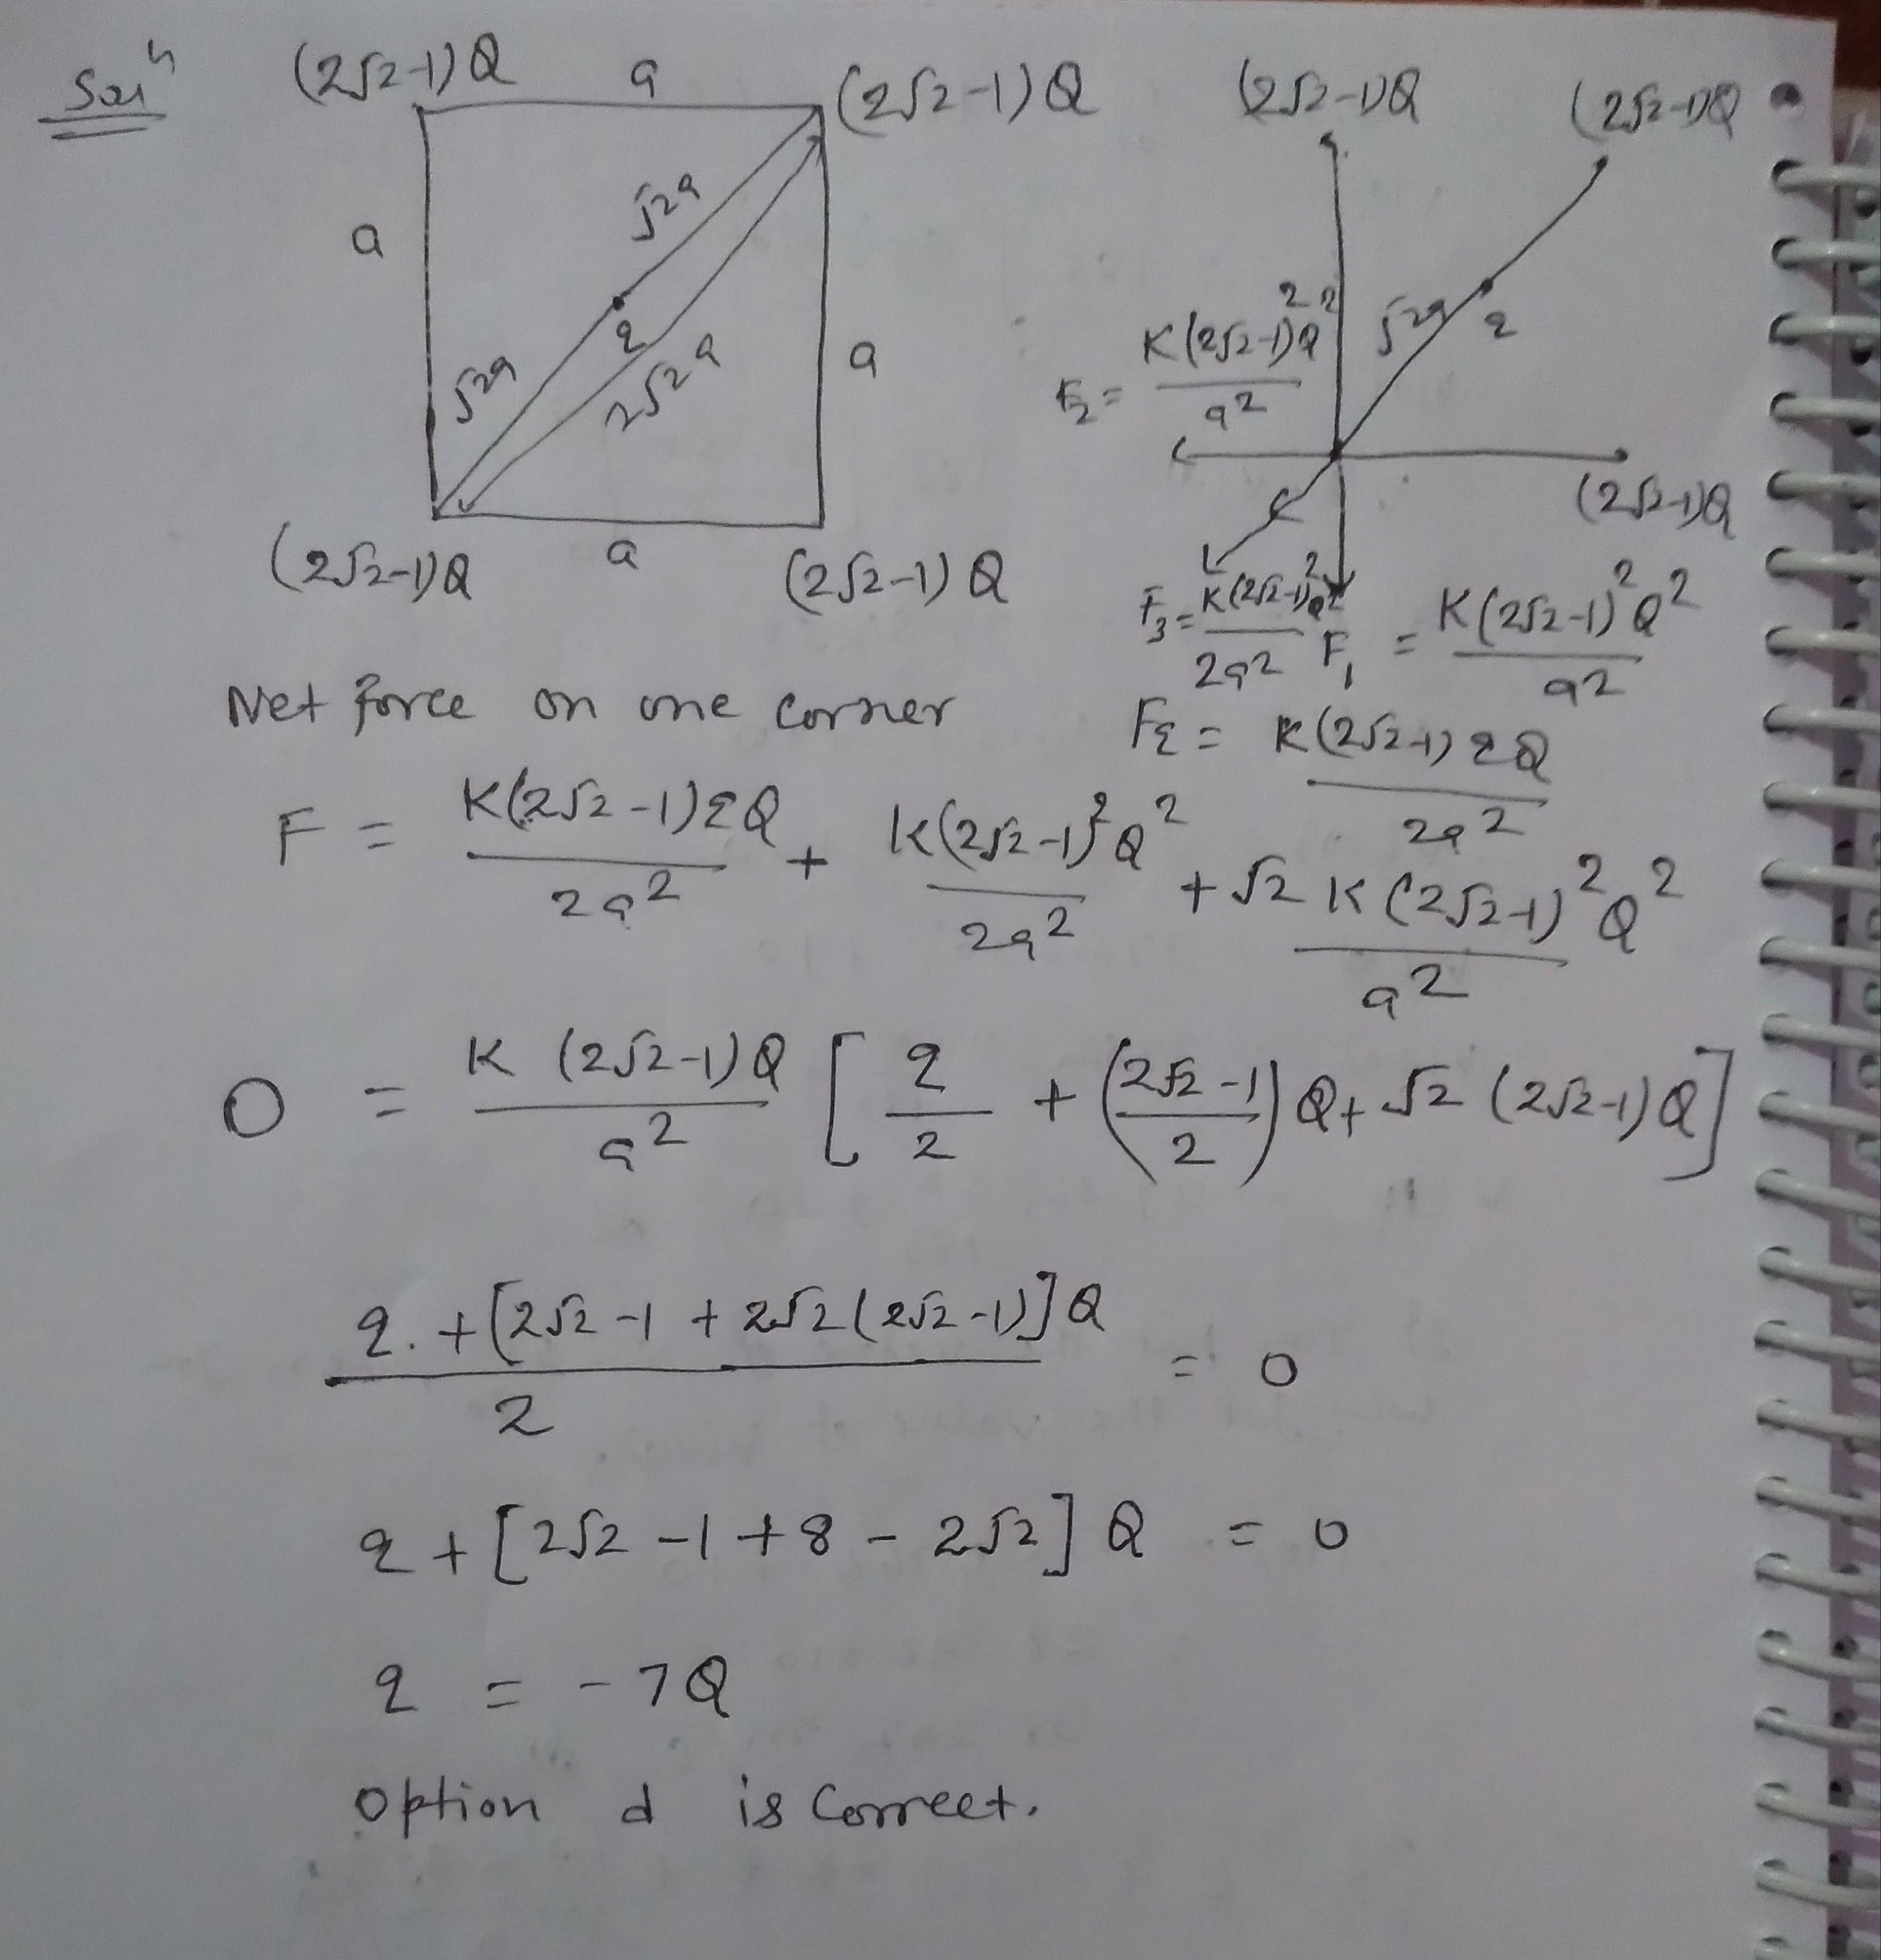 Solⁿ
(2√2-1)Q a (2√2-1)Q (2√2-1)Q (2√2-1)Q
√2a
a
a
q
√2a
2√2a
F₂ = K(2√2-1)²Q² / a²
√2a
q
(2√2-1)Q a (2√2-1)Q (2√2-1)Q
F₃ = K(2√2-1)²Q² / 2a²
F₁ = K(2√2-1)²Q² / a²
Net force on one corner
Fq = K(2√2-1)qQ / 2a²
F = K(2√2-1)qQ / 2a² + K(2√2-1)²Q² / 2a² + √2 K(2√2-1)²Q² / a²
0 = K (2√2-1)Q / a² [ q / 2 + ((2√2-1) / 2) Q + √2 (2√2-1)Q ]
q. + [2√2-1 + 2√2(2√2-1)]Q / 2 = 0
q + [2√2 -1 + 8 - 2√2] Q = 0
q = - 7Q
option d is correct.